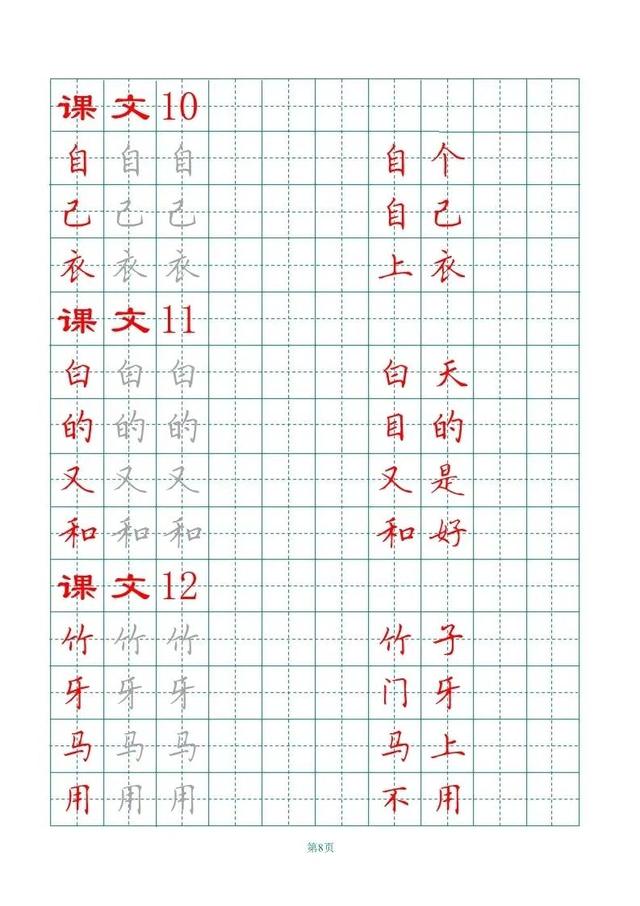 课文10
自自自自个
己己己自己
衣衣衣上衣
课文11
白白白白天
的的的目的
又又又又是
和和和和好
课文12
竹竹竹竹子
牙牙牙门牙
马马马马上
用用用不用
第8页